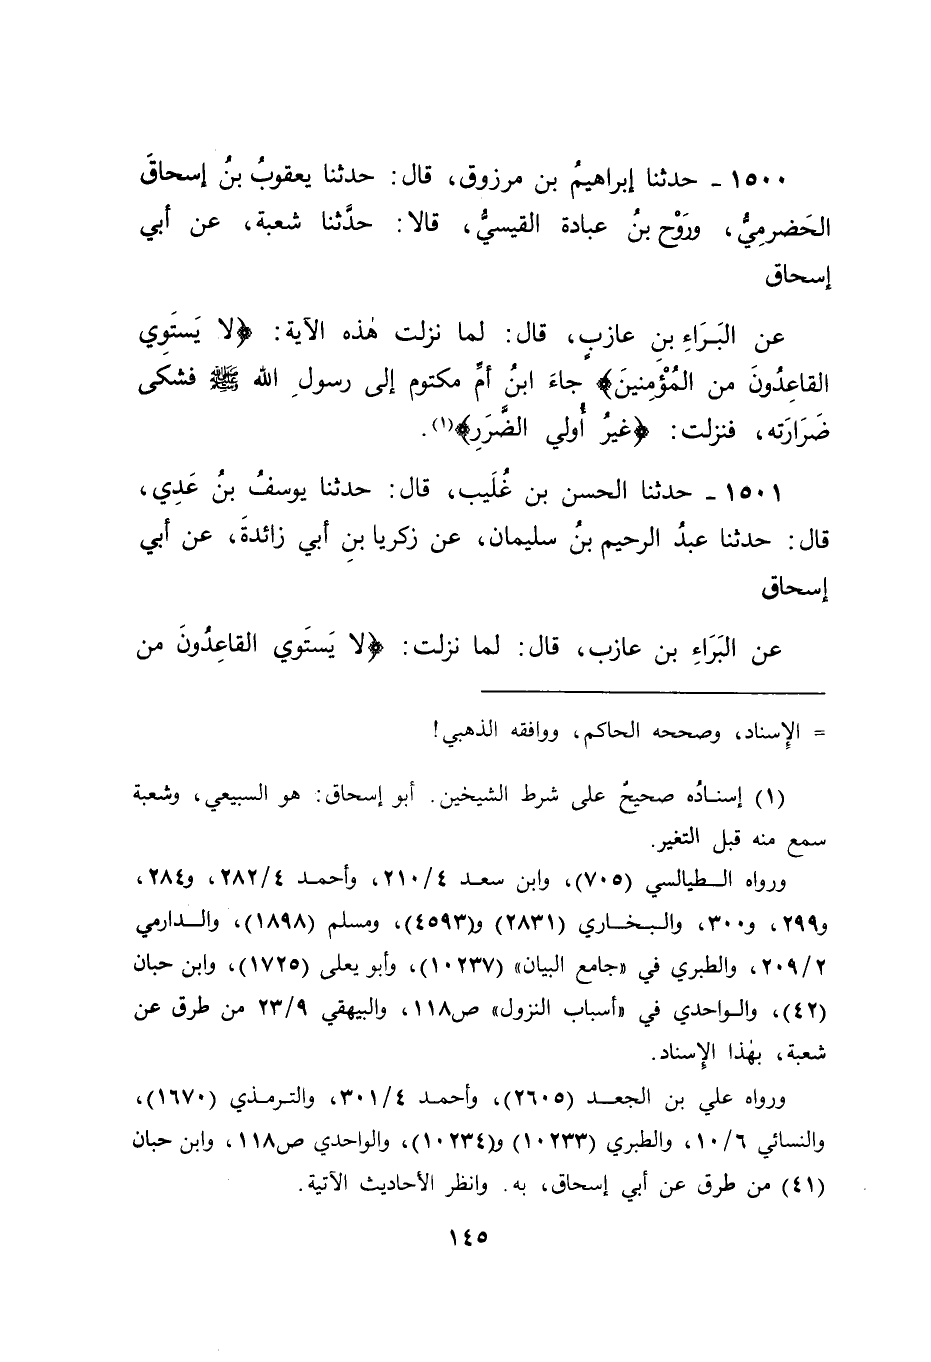 ١٥٠٠ ـ حدثنا إبراهيمُ بن مرزوق، قال: حدثنا يعقوبُ بنُ إسحاقَ
الحَضرمِيُّ، ورَوْح بنُ عبادة القيسيُّ، قالا: حدَّثنا شعبة، عن أبي
إسحاق
عن البَرَاءِ بنِ عازبٍ، قال: لما نزلت هٰذه الآية: ﴿لا يَستَوِي
القاعِدُونَ من المُؤمِنينَ﴾ جاءَ ابنُ أمِّ مكتوم إلى رسولِ الله ﷺ فشكى
ضَرَارَته، فنزلت: ﴿غيرُ أُولي الضَّرَرِ﴾(١).
١٥٠١ ـ حدثنا الحسن بن غُلَيب، قال: حدثنا يوسفُ بنُ عَدِي،
قال: حدثنا عبدُ الرحيم بنُ سليمان، عن زكريا بنِ أبي زائدةَ، عن أبي
إسحاق
عن البَرَاءِ بن عازب، قال: لما نزلت: ﴿لا يَستَوي القاعِدُونَ من
= الإِسناد، وصححه الحاكم، ووافقه الذهبي!
(١) إسنادُه صحيحٌ على شرط الشيخين. أبو إسحاق: هو السبيعي، وشعبة
سمع منه قبل التغير.
ورواه الطيالسي (٧٠٥)، وابن سعد ٢١٠/٤، وأحمد ٢٨٢/٤، و٢٨٤،
و٢٩٩، و٣٠٠، والبخاري (٢٨٣١) و(٤٥٩٣)، ومسلم (١٨٩٨)، والدارمي
٢٠٩/٢، والطبري في «جامع البيان» (١٠٢٣٧)، وأبو يعلى (١٧٢٥)، وابن حبان
(٤٢)، والواحدي في «أسباب النزول» ص١١٨، والبيهقي ٢٣/٩ من طرق عن
شعبة، بهٰذا الإِسناد.
ورواه علي بن الجعد (٢٦٠٥)، وأحمد ٣٠١/٤، والترمذي (١٦٧٠)،
والنسائي ١٠/٦، والطبري (١٠٢٣٣) و(١٠٢٣٤)، والواحدي ص١١٨، وابن حبان
(٤١) من طرق عن أبي إسحاق، به. وانظر الأحاديث الآتية.
١٤٥